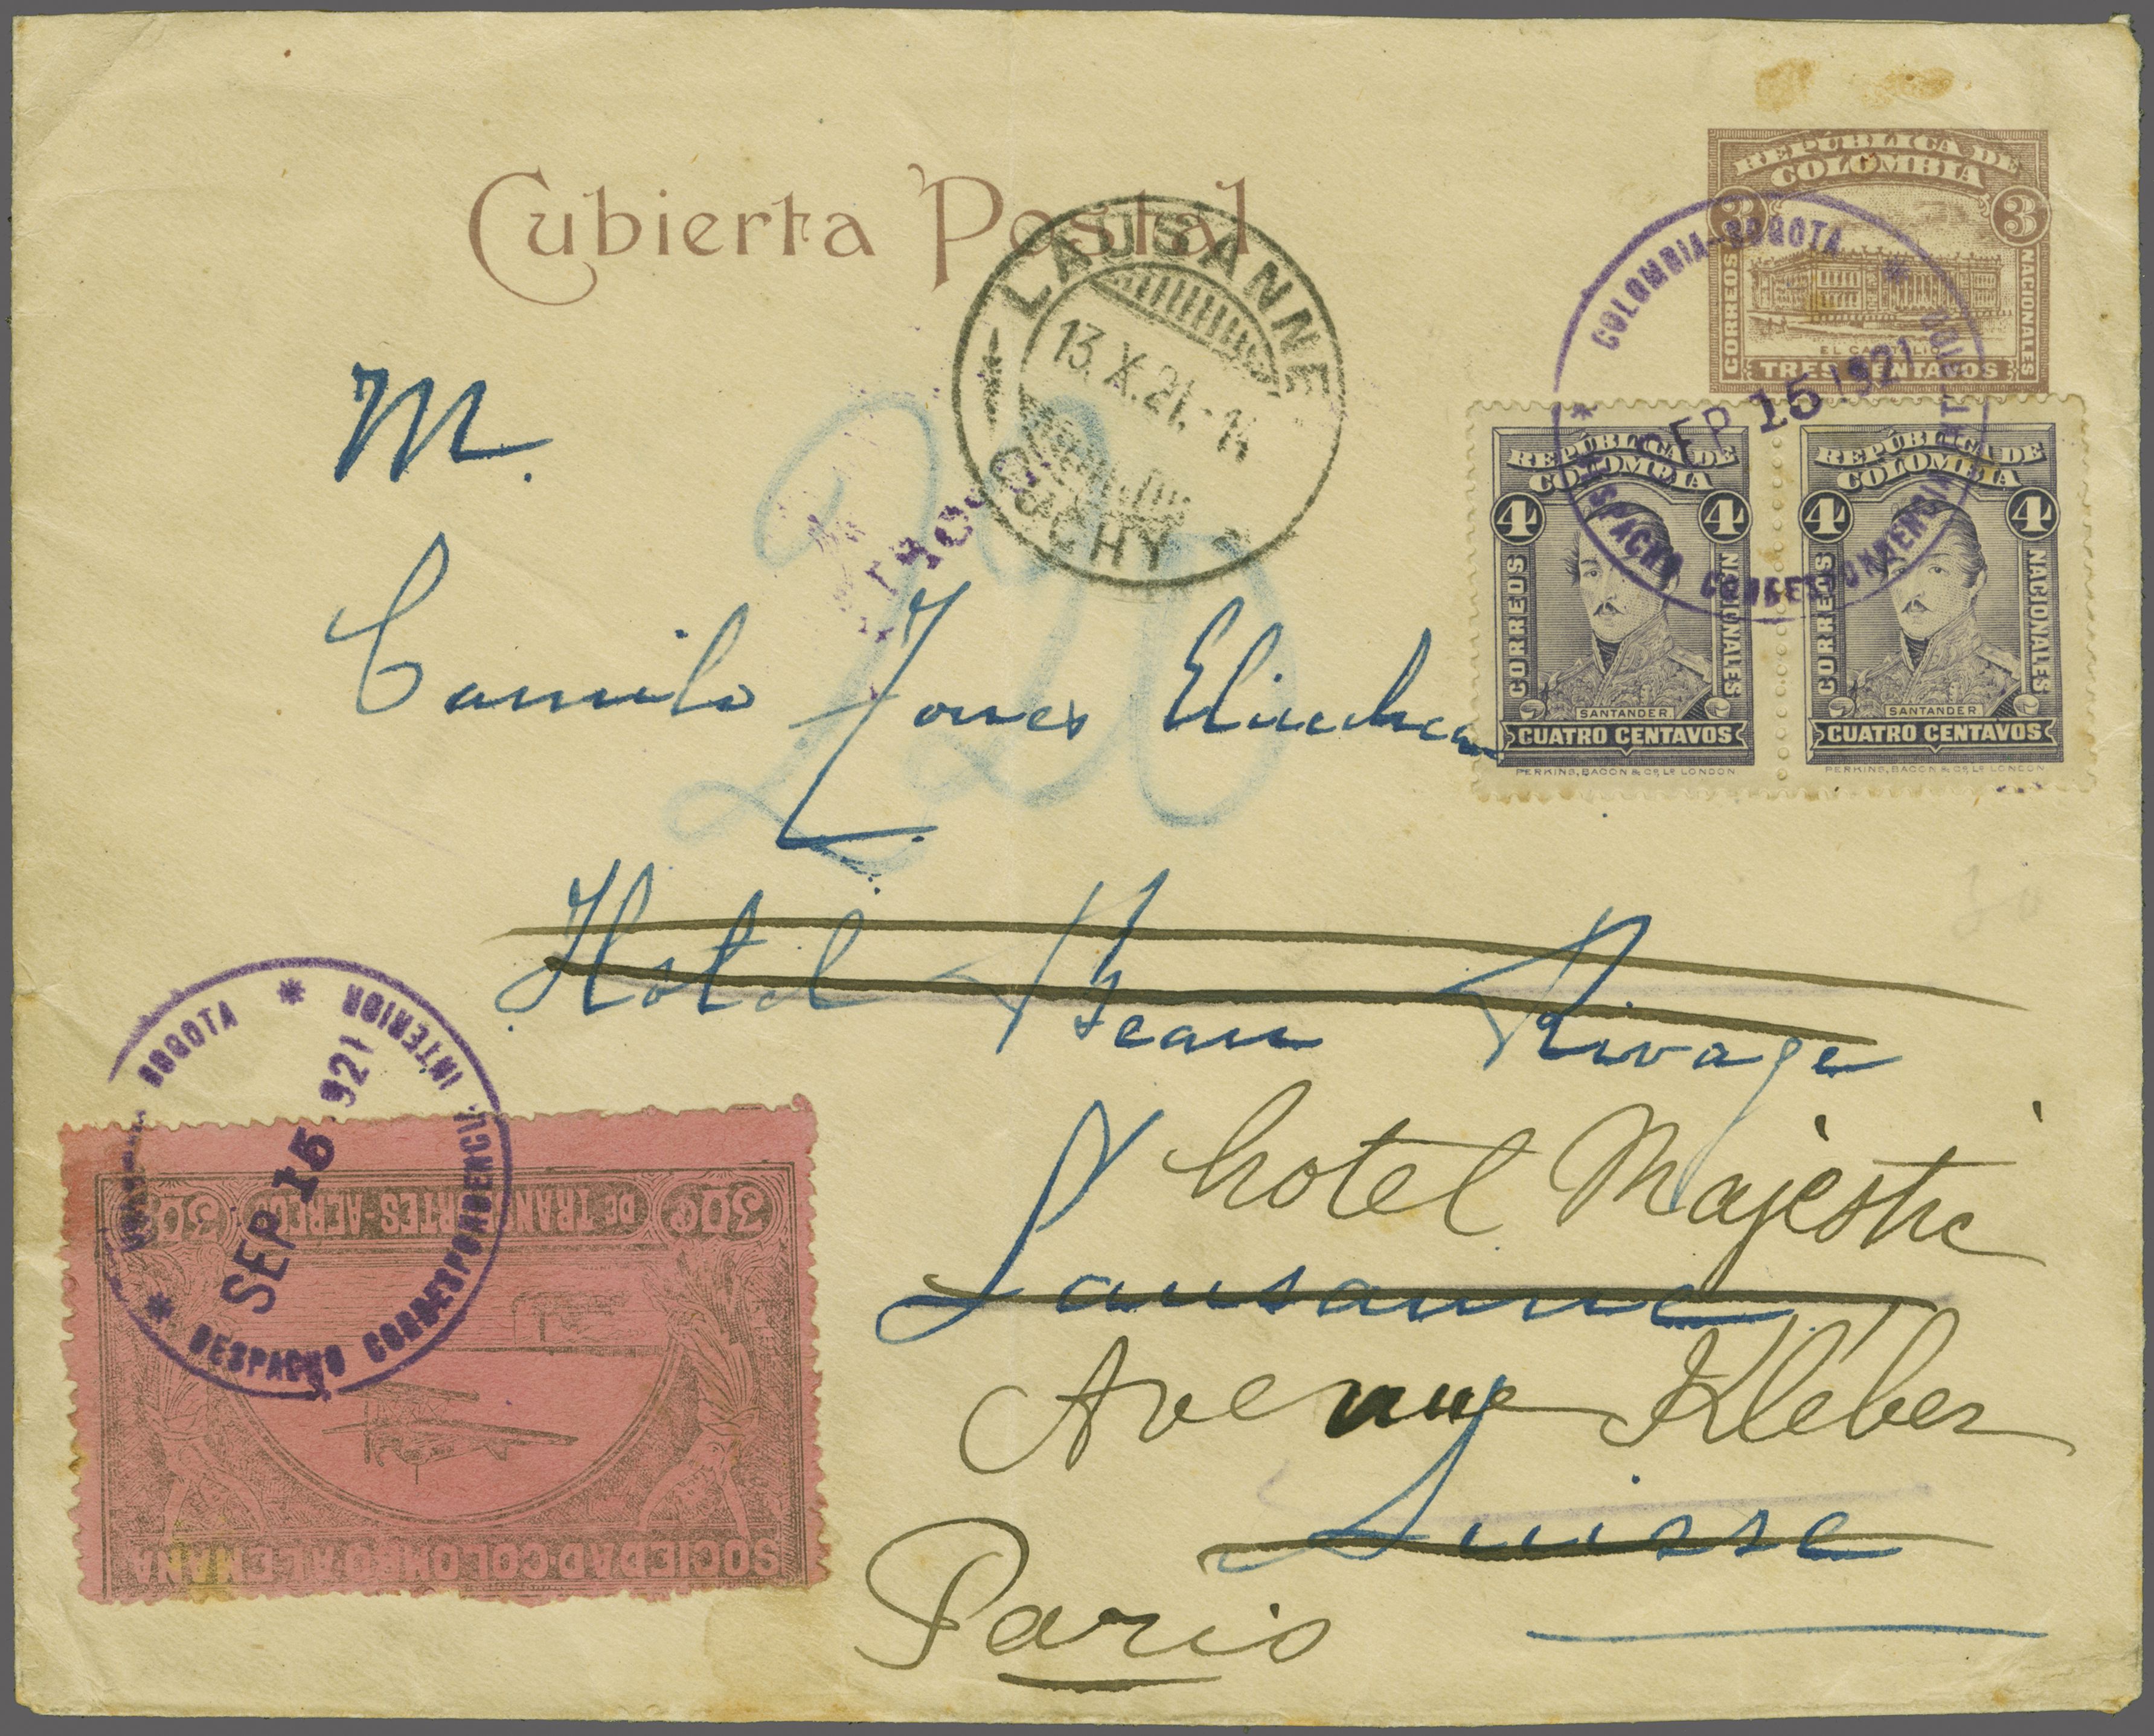 Cubierta Postal
REPÚBLICA DE
COLOMBIA
3 3
CORREOS
NACIONALES
EL CAPITOLIO
TRES CENTAVOS
COLOMBIA-BOGOTA
INTERIOR
SEP 15 1921
DESPACHO CORRESPONDENCIA
LAUSANNE
13.X.21.-14
OUCHY
REPÚBLICA DE
COLOMBIA
4 4
CORREOS
NACIONALES
SANTANDER
CUATRO CENTAVOS
PERKINS, BACON & Cº Lº LONDON
REPÚBLICA DE
COLOMBIA
4 4
CORREOS
NACIONALES
SANTANDER
CUATRO CENTAVOS
PERKINS, BACON & Cº Lº LONDON
M.
Camilo Torres
Hotel Beau Rivage
hotel Majestic
Lausanne
Avenue Kléber
Suisse
Paris
BOGOTA
INTERIOR
SEP 15 1921
DESPACHO CORRESPONDENCIA
SOCIEDAD COLOMBO-ALEMANA
DE TRANSPORTES-AEREOS
30¢ 30¢